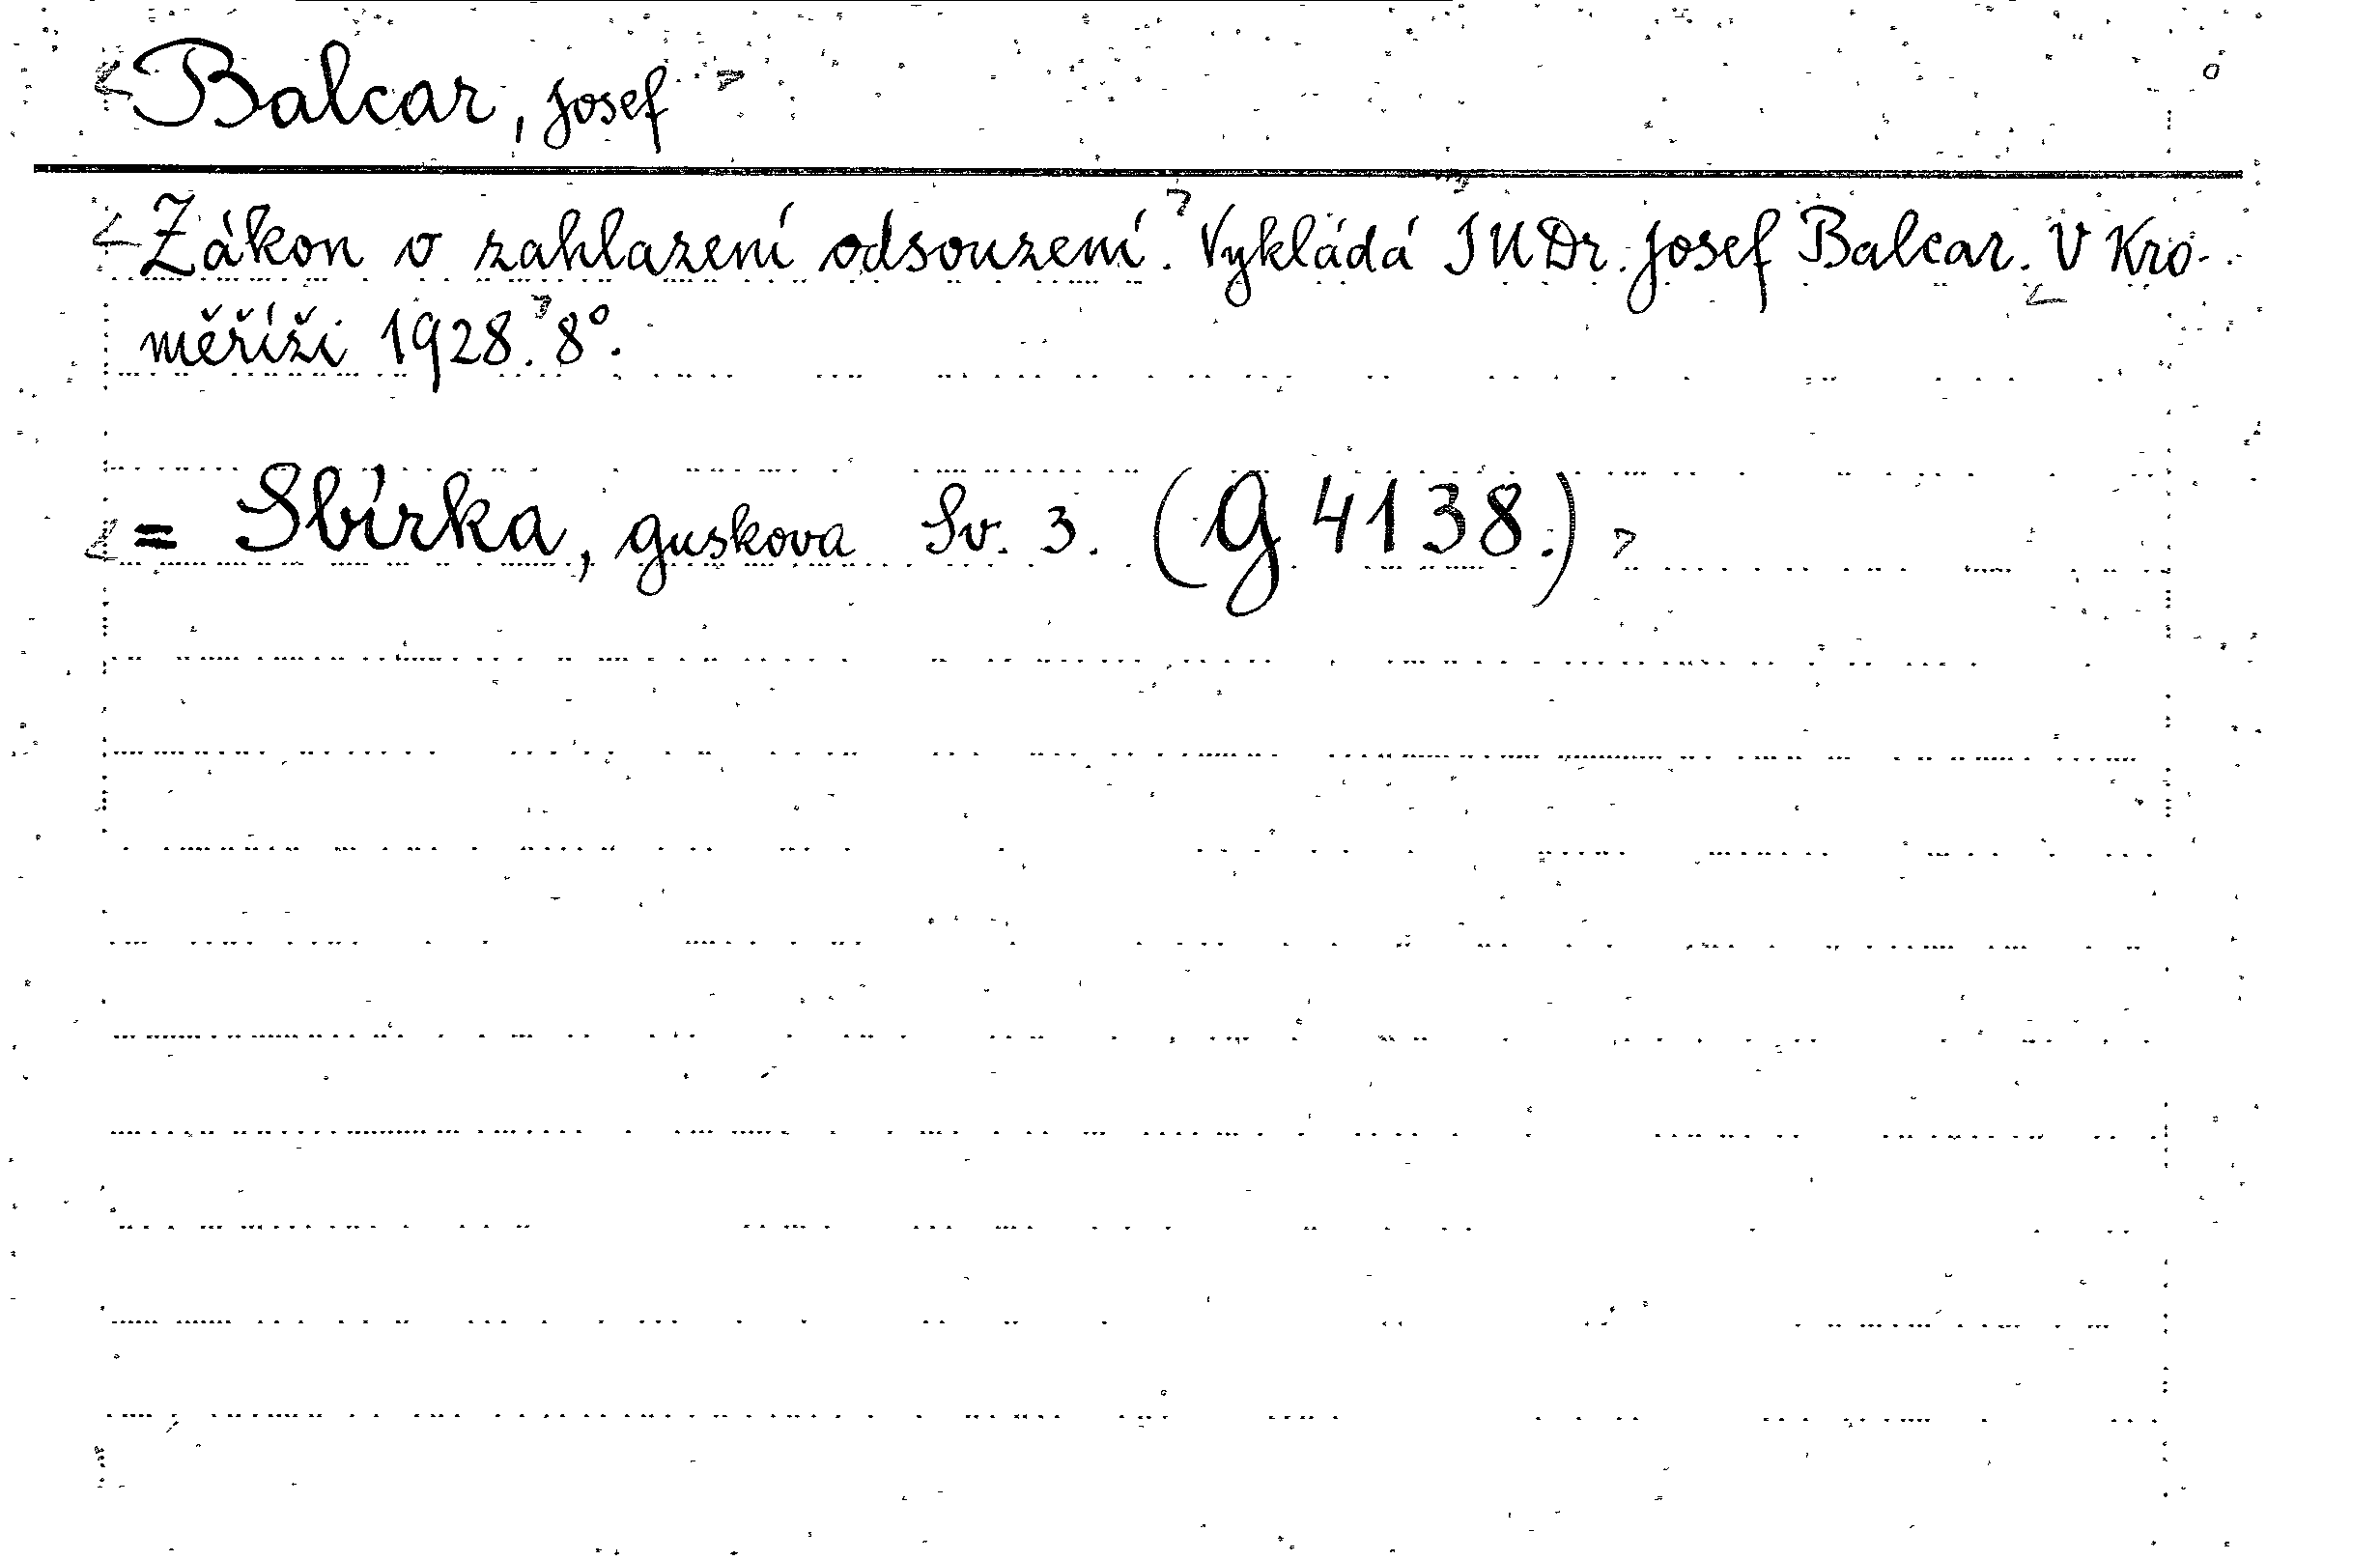 Balcar, Josef
Zákon o zahlazení odsouzení. Vykládá JUDr. Josef Balcar. V Kro-
měříži 1928. 8°.
= Sbírka, guskova Sv. 3. (G 4138.)